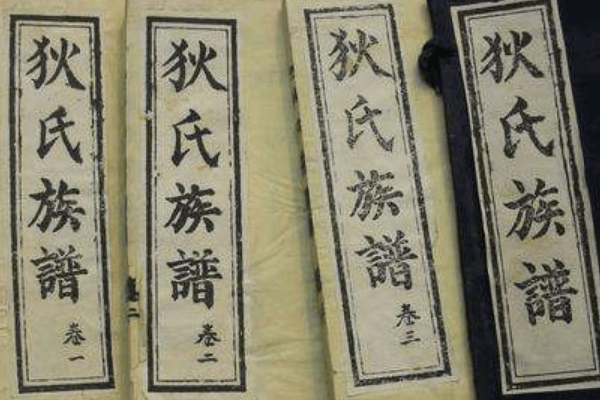 狄氏族譜
卷一
狄氏族譜
卷二
狄氏族譜
卷三
狄氏族譜